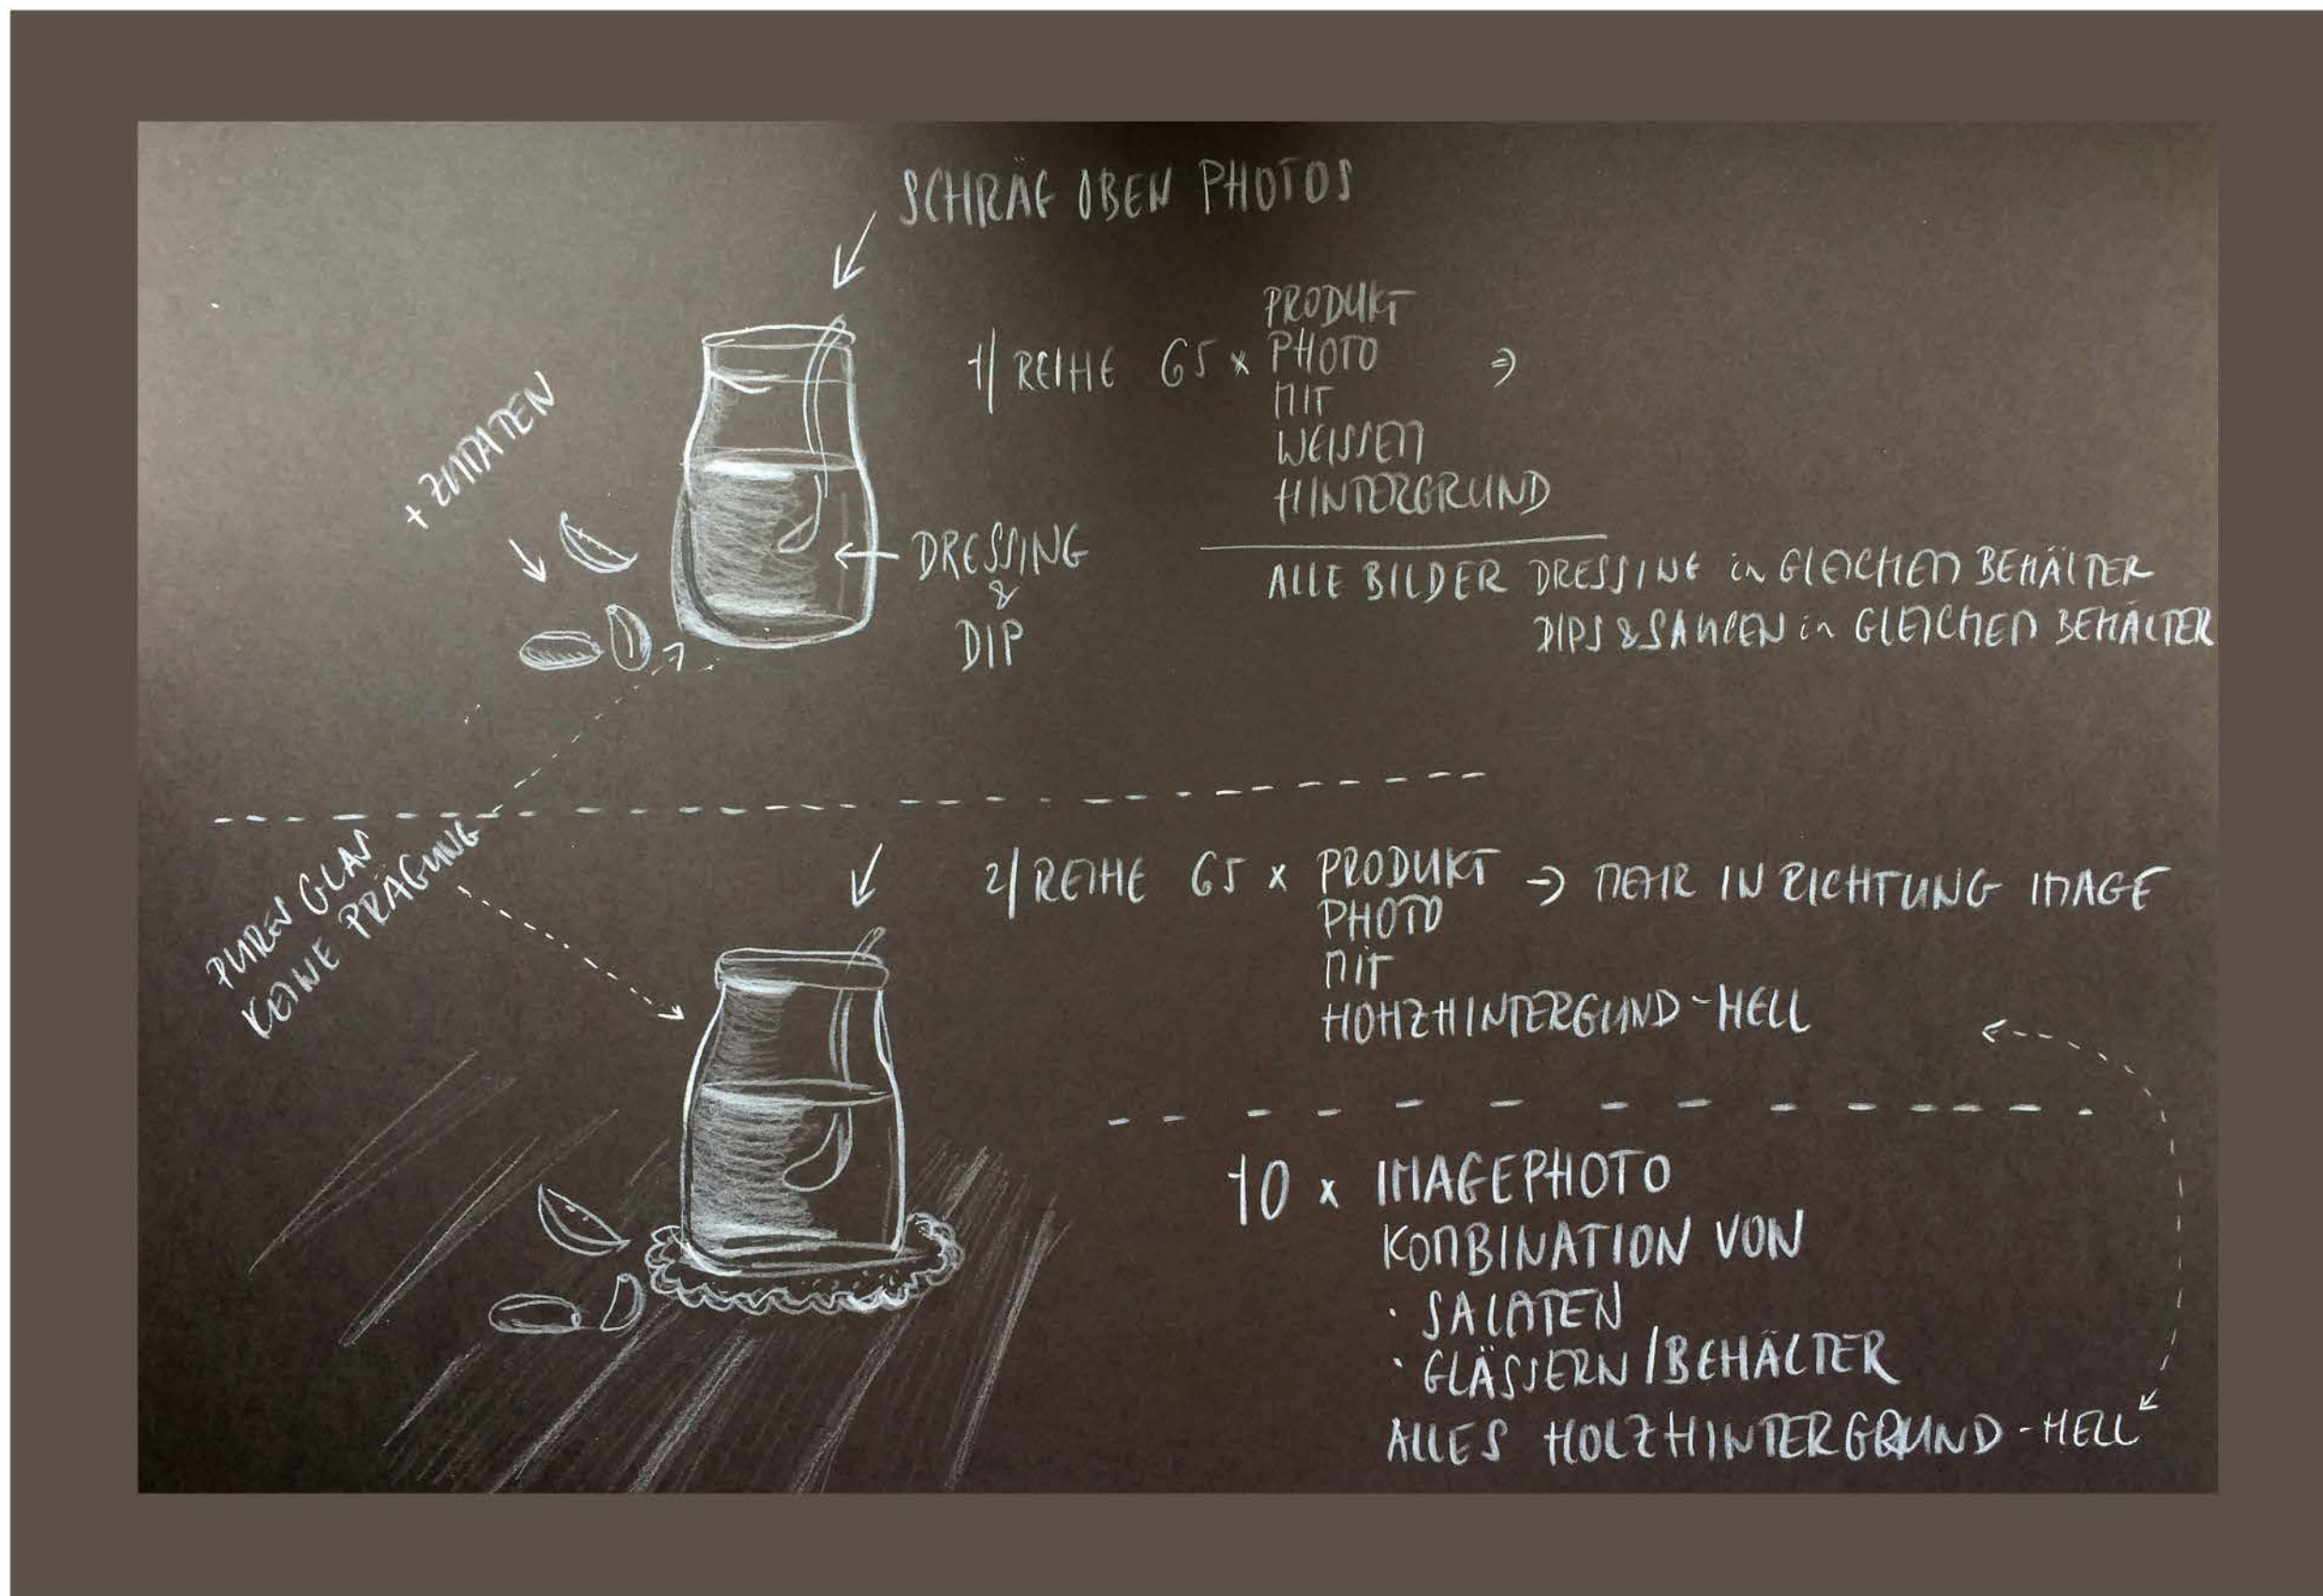 SCHRÄG OBEN PHOTOS
+ ZUTATEN
1/ REIHE 65 x PRODUKT
PHOTO
MIT
WEISSEM
HINTERGRUND
→
DRESSING
&
DIP
ALLE BILDER DRESSING in GLEICHEM BEHÄLTER
DIPS & SAUCEN in GLEICHEM BEHÄLTER
PURES GLAS
KEINE PRÄGUNG
2/ REIHE 65 x PRODUKT → MEHR IN RICHTUNG IMAGE
PHOTO
MIT
HOHZHINTERGUND - HELL
10 x IMAGEPHOTO
KOMBINATION VON
· SALATEN
· GLÄSSERN / BEHÄLTER
ALLES HOLZHINTERGRUND - HELL